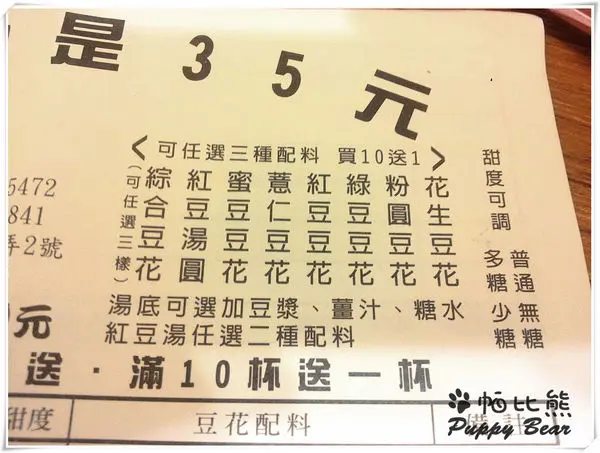 是35元
<可任選三種配料 買10送1>
花生豆花
粉圓豆花
綠豆豆花
紅豆豆花
薏仁豆花
蜜豆豆花
紅豆湯圓
綜合豆花
(可任選三樣)
甜度可調
普通 無糖
多糖 少糖
湯底可選加豆漿、薑汁、糖水
紅豆湯任選二種配料
5472
841
弄2號
元
送·滿10杯送一杯
甜度 豆花配料 備註
帕比熊
Puppy Bear